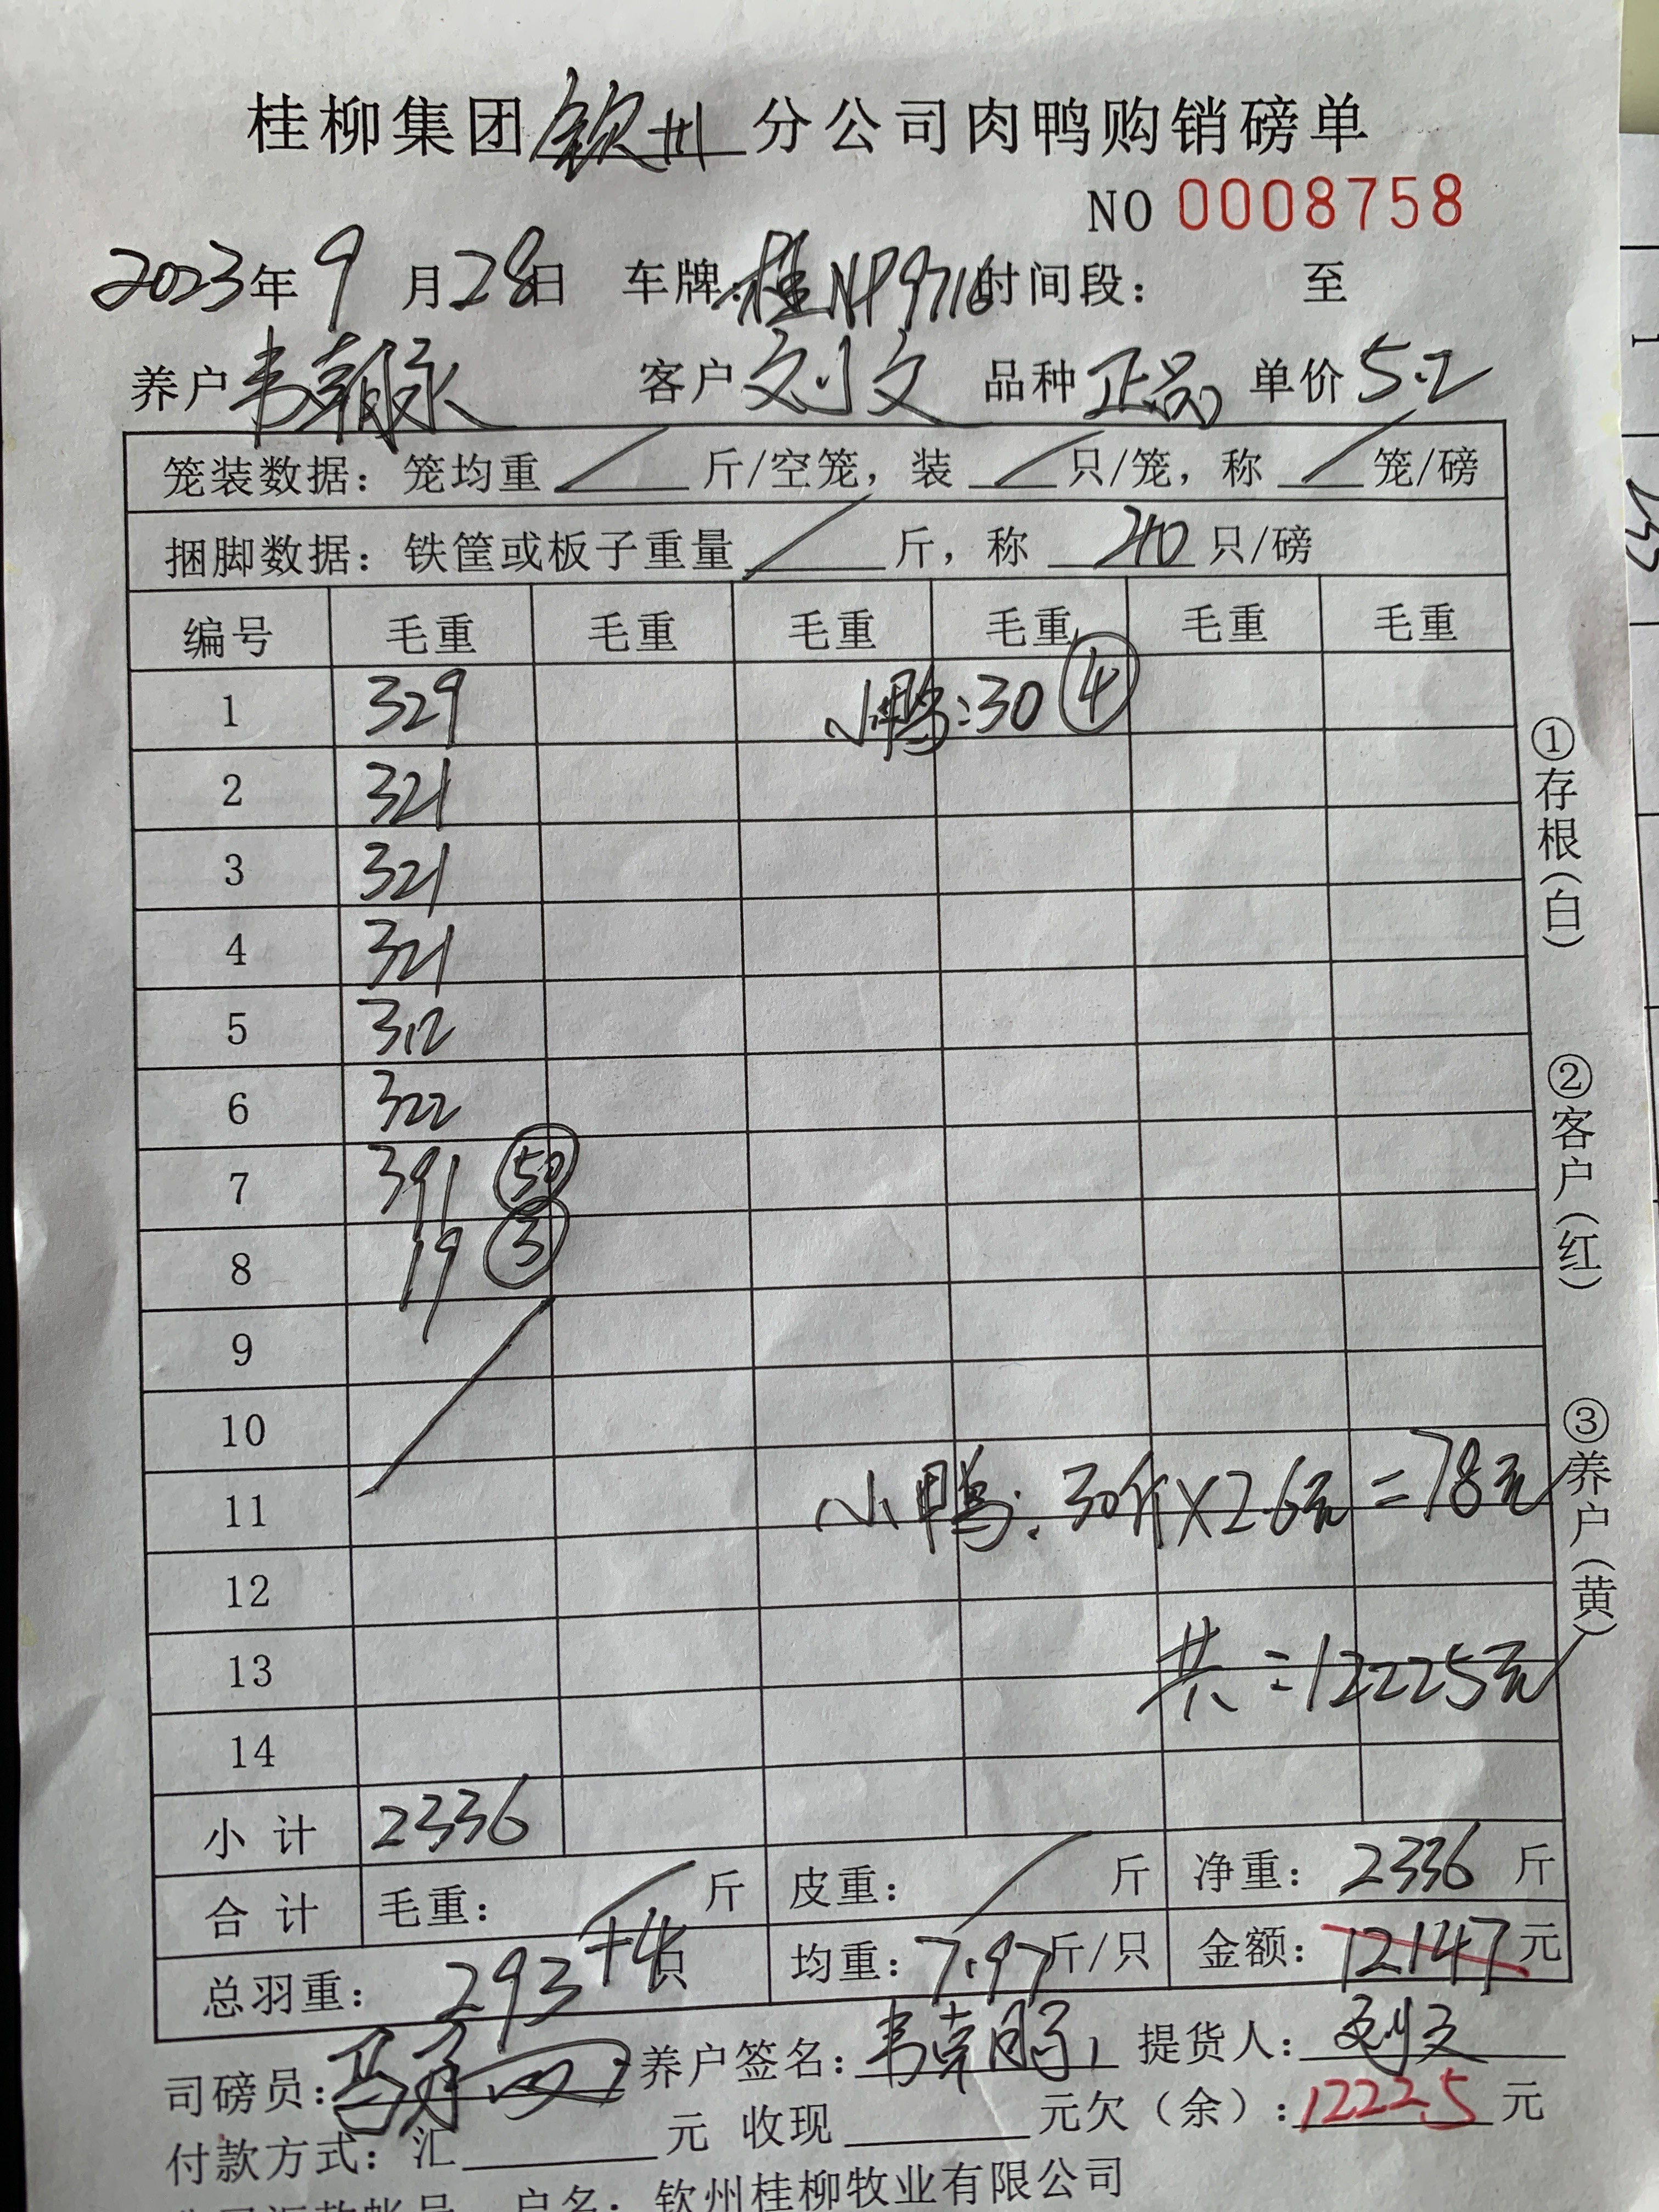 桂柳集团钦州分公司肉鸭购销磅单
NO 0008758
2023年9月28日 车牌:桂NP9716时间段: 至
养户韦朝永 客户刘文 品种正品 单价5.2
笼装数据:笼均重 斤/空笼,装 只/笼,称 笼/磅
捆脚数据:铁筐或板子重量 斤,称 240 只/磅
编号 毛重 毛重 毛重 毛重 毛重 毛重
1 329 小鸭:30 ④
2 321
3 321
4 321
5 312
6 322
7 391 50
8 19 ③
9
10
11 小鸭:30斤×2.6元=78元
12
13 共=12225元
14
小计 2336
合计 毛重: 斤 皮重: 斤 净重:2336斤
总羽重:293+4只 均重:7.97斤/只 金额:12147元
司磅员: 养户签名: 提货人:刘文
付款方式:汇 元 收现 元欠(余):12225元
户名:钦州桂柳牧业有限公司
①存根(白)
②客户(红)
③养户(黄)